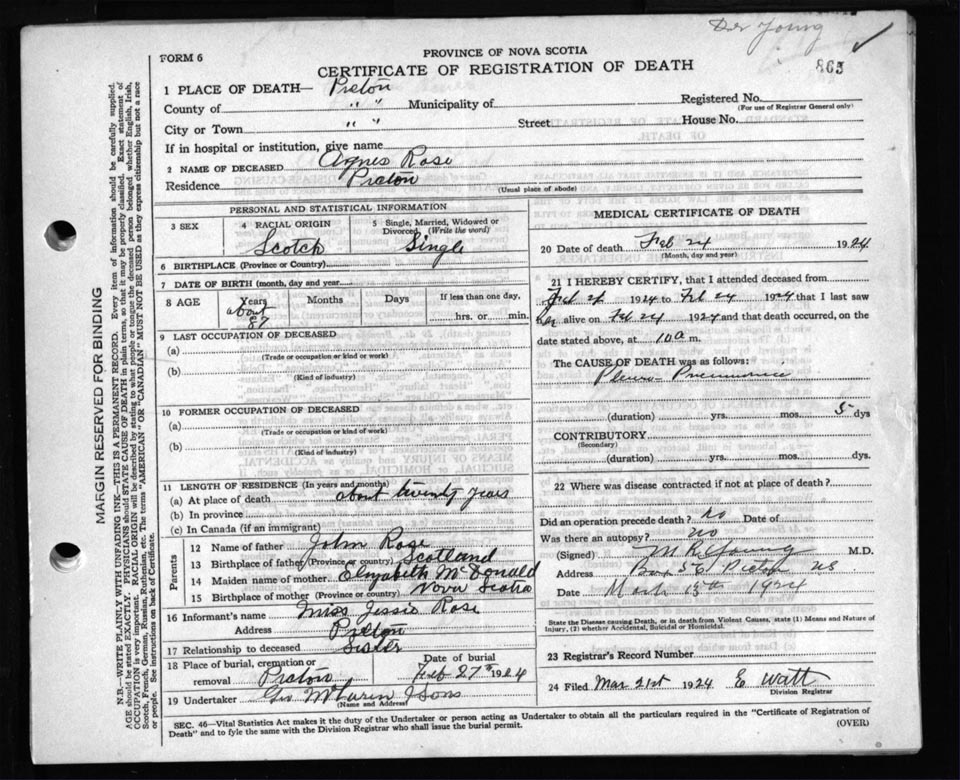 Dr Young
PROVINCE OF NOVA SCOTIA
FORM 6
CERTIFICATE OF REGISTRATION OF DEATH
863
1 PLACE OF DEATH— Pictou
County of " " Municipality of Registered No.
(For use of Registrar General only)
City or Town " " Street House No.
If in hospital or institution, give name
2 NAME OF DECEASED Agnes Rose
Residence Pictou
(Usual place of abode)
PERSONAL AND STATISTICAL INFORMATION
3 SEX
4 RACIAL ORIGIN Scotch
5 Single, Married, Widowed or Divorced (Write the word) Single
6 BIRTHPLACE (Province or Country)
7 DATE OF BIRTH (month, day and year)
8 AGE Years Months Days If less than one day,
about 87 hrs. or min.
9 LAST OCCUPATION OF DECEASED
(a)
(Trade or occupation or kind or work)
(b)
(Kind of industry)
10 FORMER OCCUPATION OF DECEASED
(a)
(Trade or occupation or kind of work)
(b)
(Kind of industry)
11 LENGTH OF RESIDENCE (In years and months)
(a) At place of death about twenty years
(b) In province
(c) In Canada (if an immigrant)
Parents
12 Name of father John Rose
13 Birthplace of father (Province or country) Scotland
14 Maiden name of mother Elizabeth McDonald
15 Birthplace of mother (Province or country) Nova Scotia
16 Informant's name Miss Jessie Rose
Address Pictou
17 Relationship to deceased Sister
18 Place of burial, cremation or removal Pictou Date of burial Feb 27th 1924
19 Undertaker Geo McLaren & Sons
(Name and Address)
MEDICAL CERTIFICATE OF DEATH
20 Date of death Feb 24 1924
(Month, day and year)
21 I HEREBY CERTIFY, that I attended deceased from
Feb 1924 to Feb 24 1924 that I last saw
her alive on Feb 24 1924 and that death occurred, on
date stated above, at 10 a m.
The CAUSE OF DEATH was as follows:
Pleuro-Pneumonia
(duration) yrs. mos. 5 dys
CONTRIBUTORY
(Secondary)
(duration) yrs. mos. dys.
22 Where was disease contracted if not at place of death?
Did an operation precede death? no Date of
Was there an autopsy? no
(Signed) M R Young M.D.
Address Box Pictou NS
Date March 1924
State the Disease causing Death, or in death from Violent Causes, state (1) Means and Nature of
Injury, (2) whether Accidental, Suicidal or Homicidal.
23 Registrar's Record Number
24 Filed Mar 21st 1924 E Watt
Division Registrar
SEC. 46—Vital Statistics Act makes it the duty of the Undertaker or person acting as Undertaker to obtain all the particulars required in the "Certificate of Registration of
Death" and to fyle the same with the Division Registrar who shall issue the burial permit.
(OVER)
MARGIN RESERVED FOR BINDING
N.B.—WRITE PLAINLY WITH UNFADING INK—THIS IS A PERMANENT RECORD. Every item of information should be carefully supplied.
AGE should be stated EXACTLY. PHYSICIANS should STATE CAUSE OF DEATH in plain terms, so that it may be properly classified. Exact statement of
OCCUPATION is very important. RACIAL ORIGIN will be described by stating to what people or tongue the deceased person belonged, whether English, Irish,
Scotch, French, German, Russian, Ruthenian, etc. The terms "AMERICAN" OR "CANADIAN" MUST NOT BE USED as they express citizenship but not a race
or people. See instructions on back of Certificate.